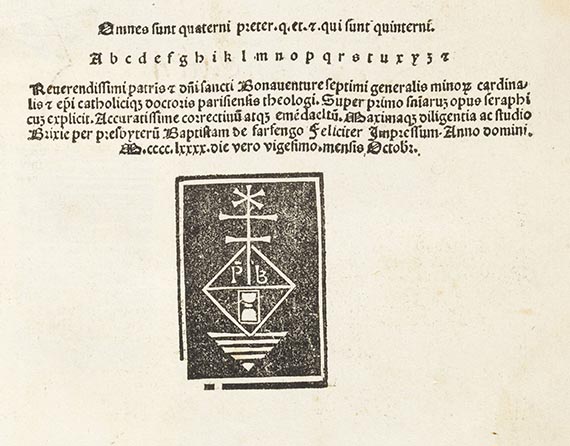 Omnes sunt quaterni preter .q. et .⁊. qui sunt quinterni.
A b c d e f g h i k l m n o p q r s t u x y ʒ ⁊
Reuerendissimi patris ⁊ dñi sancti Bonauenture septimi generalis minoꝝ cardina-
lis ⁊ ep̄i catholiciqꝫ doctoris parisiensis theologi. Super primo sn̄iaruꝫ opus seraphi
cuꝫ explicit. Accuratissime correctiuꝫ atqꝫ emēdatū. Maximaqꝫ diligentia ac studio
Brixie per presbyterū Baptistam de farfengo Feliciter Impressum. Anno domini.
M. cccc. lxxxx. die vero vigesimo. mensis Octobr.
P̄ b